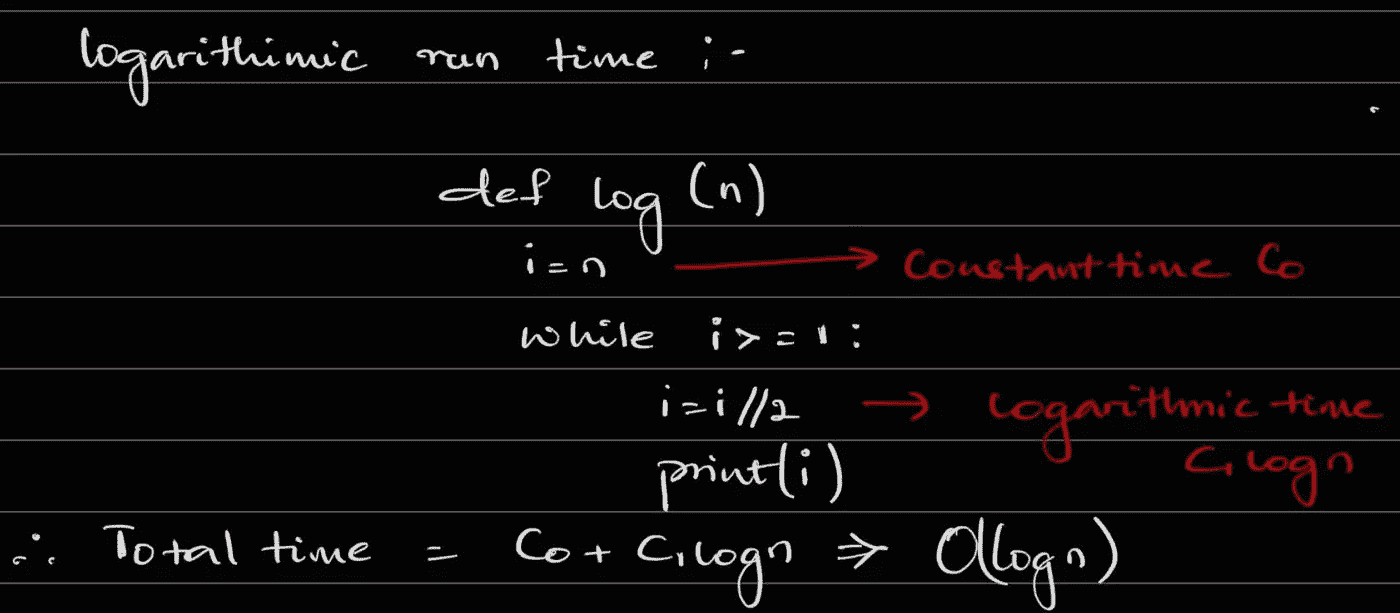 logarithimic run time :-
def log (n)
i=n → Constant time C0
while i>=1:
i=i//2 → logarithmic time
print(i) C1 logn
∴ Total time = C0 + C1 logn ⇒ O(logn)